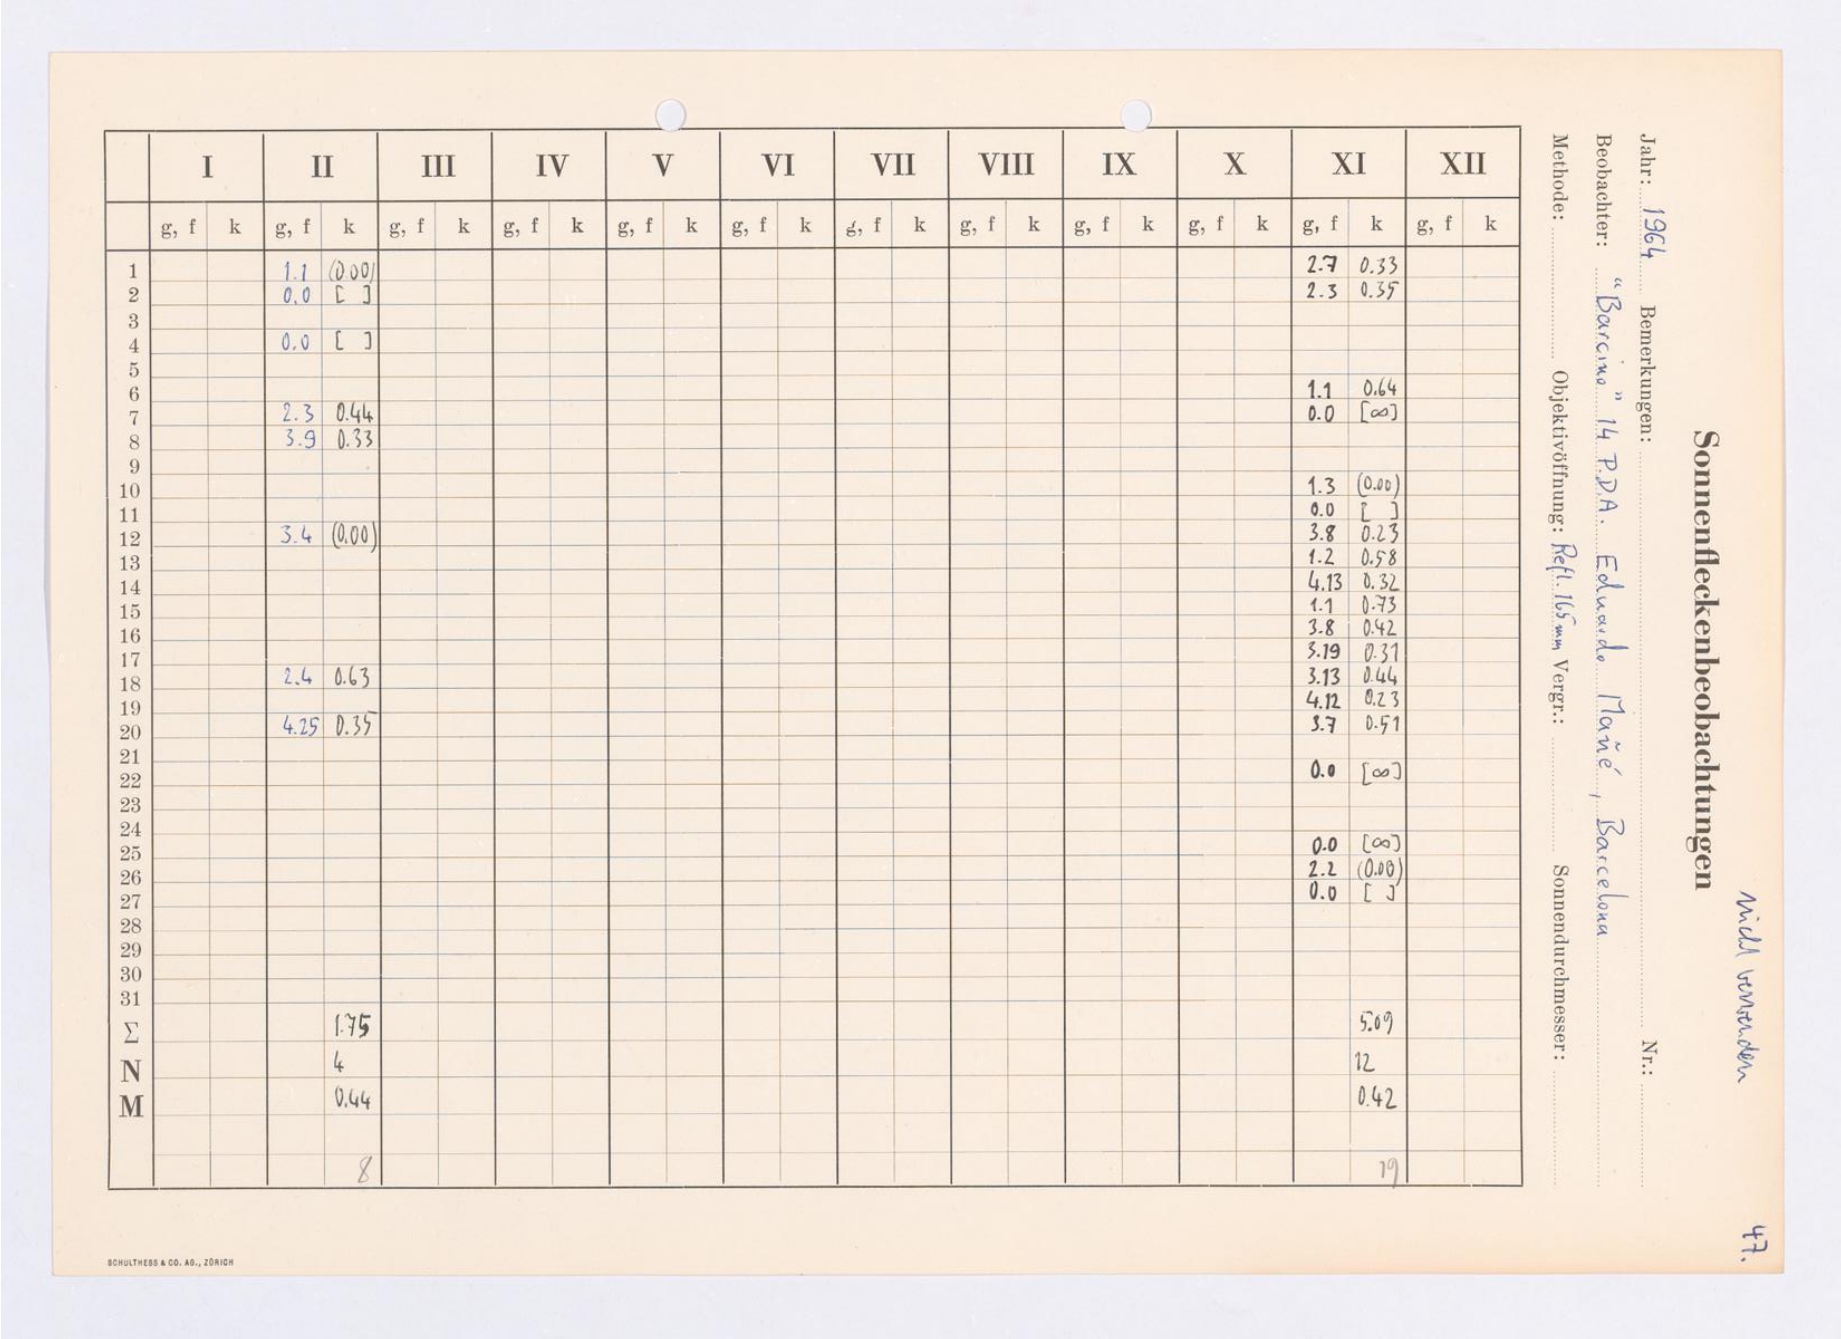 Sonnenfleckenbeobachtungen
nicht verwenden
47.
Jahr: 1964 Bemerkungen: Nr.:
Beobachter: "Barcino" 14 P.D.A. Eduardo Mañé, Barcelona
Methode: Objektivöffnung: Refl. 165 mm Vergr.: Sonnendurchmesser:
I II III IV V VI VII VIII IX X XI XII
g, f k g, f k g, f k g, f k g, f k g, f k g, f k g, f k g, f k g, f k g, f k g, f k
1 1.1 (0.00) 2.7 0.33
2 0.0 [ ] 2.3 0.35
3
4 0.0 [ ]
5
6 1.1 0.64
7 2.3 0.44 0.0 [∞]
8 3.9 0.33
9
10 1.3 (0.00)
11 0.0 [ ]
12 3.4 (0.00) 3.8 0.23
13 1.2 0.58
14 4.13 0.32
15 1.1 0.73
16 3.8 0.42
17 3.19 0.31
18 2.4 0.63 3.13 0.44
19 4.12 0.23
20 4.25 0.35 3.7 0.51
21
22 0.0 [∞]
23
24
25 0.0 [∞]
26 2.2 (0.00)
27 0.0 [ ]
28
29
30
31
Σ 1.75 5.09
N 4 12
M 0.44 0.42
8 19
SCHULTHESS & CO. AG., ZÜRICH